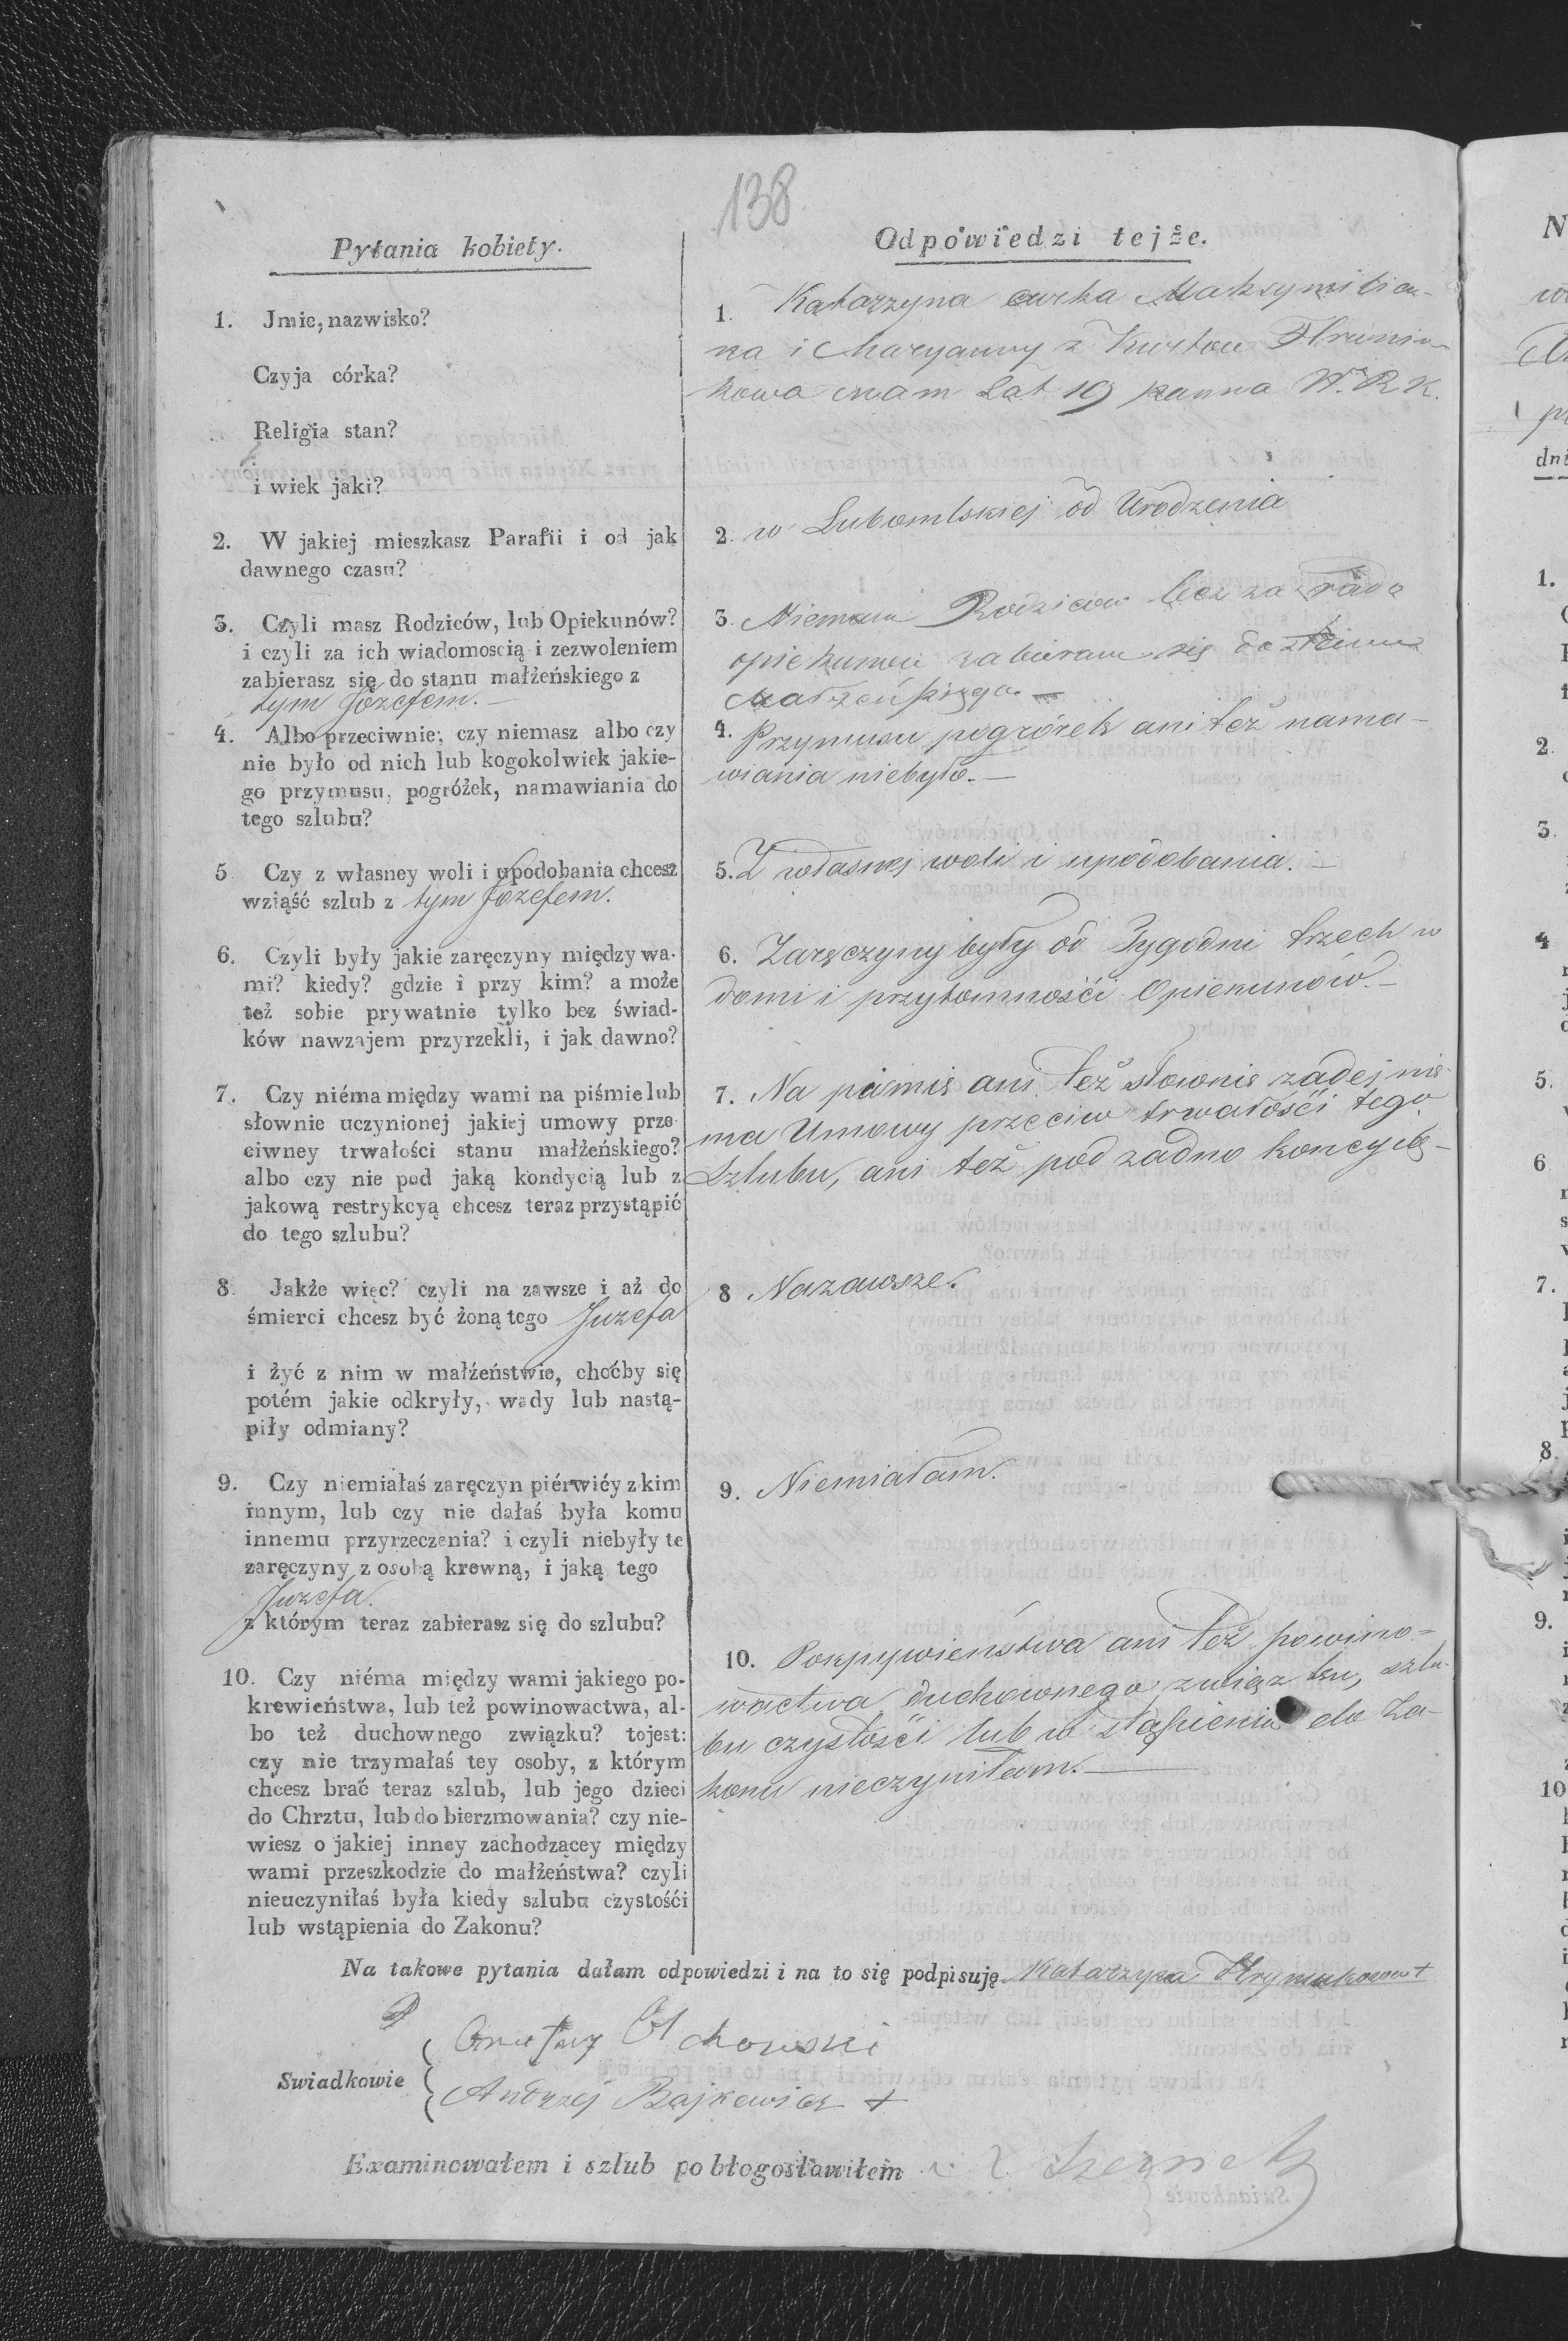 138
Pytania kobiety.
1. Jmie, nazwisko?
Czyja córka?
Religia stan?
i wiek jaki?
2. W jakiej mieszkasz Parafii i od jak
dawnego czasu?
3. Czyli masz Rodziców, lub Opiekunów?
i czyli za ich wiadomoscią i zezwoleniem
zabierasz się do stanu małżeńskiego z
tym Józefem.—
4. Albo przeciwnie; czy niemasz albo czy
nie było od nich lub kogokolwiek jakie-
go przymusu, pogróżek, namawiania do
tego szlubu?
5. Czy z własney woli i upodobania chcesz
wziąść szlub z tym Józefem.
6. Czyli były jakie zaręczyny między wa-
mi? kiedy? gdzie i przy kim? a może
też sobie prywatnie tylko bez świad-
ków nawzajem przyrzekli, i jak dawno?
7. Czy niéma między wami na piśmie lub
słownie uczynionej jakiej umowy prze
ciwney trwałości stanu małżeńskiego?
albo czy nie pod jaką kondycią lub z
jakową restrykcyą chcesz teraz przystąpić
do tego szlubu?
8. Jakże więc? czyli na zawsze i aż do
śmierci chcesz być żoną tego Juzefa
i żyć z nim w małżeństwie, choćby się
potém jakie odkryły, wady lub nastą-
piły odmiany?
9. Czy niemiałaś zaręczyn piérwićy z kim
innym, lub czy nie dałaś była komu
innemu przyrzeczenia? i czyli niebyły te
zaręczyny z osobą krewną, i jaką tego
Juzefa.
z którym teraz zabierasz się do szlubu?
10. Czy niéma między wami jakiego po-
krewieństwa, lub też powinowactwa, al-
bo też duchownego związku? tojest:
czy nie trzymałaś tey osoby, z którym
chcesz brać teraz szlub, lub jego dzieci
do Chrztu, lub do bierzmowania? czy nie-
wiesz o jakiej inney zachodzącey między
wami przeszkodzie do małżeństwa? czyli
nieuczyniłaś była kiedy szlubu czystośći
lub wstąpienia do Zakonu?
Odpowiedzi tejże.
1. Katarzyna curka Maksymilia-
na i Maryanny z
kowa mam Lat 19 panna W. R K.
2. w Lubomlskiej od Urodzenia
3. Niemam Rodzicow lecz za rado
opiekunow zabieram się do
Małżeńskiego —
4. Przymusu pogrórek ani też nama-
wiania niebyło.—
5. Z własnej woli i upodobania.—
6. Zaręczyny były od Tygodni trzech w
domi i przytomnośći Opiekunów.—
7. Na piśmie ani też słownie żadej nie
ma Umowy przeciw trwałośći tego
Szlubu, ani też pod zadno
8 Nazawsze.
9. Niemiałam.
10. ani też powino-
wactwa duchownego związku, szlu-
bu czystośći lub w stąpienia do Za-
konu nieczyniłam.—
Na takowe pytania dałam odpowiedzi i na to się podpisuję Katarzyna +
Swiadkowie
Andrzej Bajkewicz +
Examinowałem i szlub pobłogosławiłem